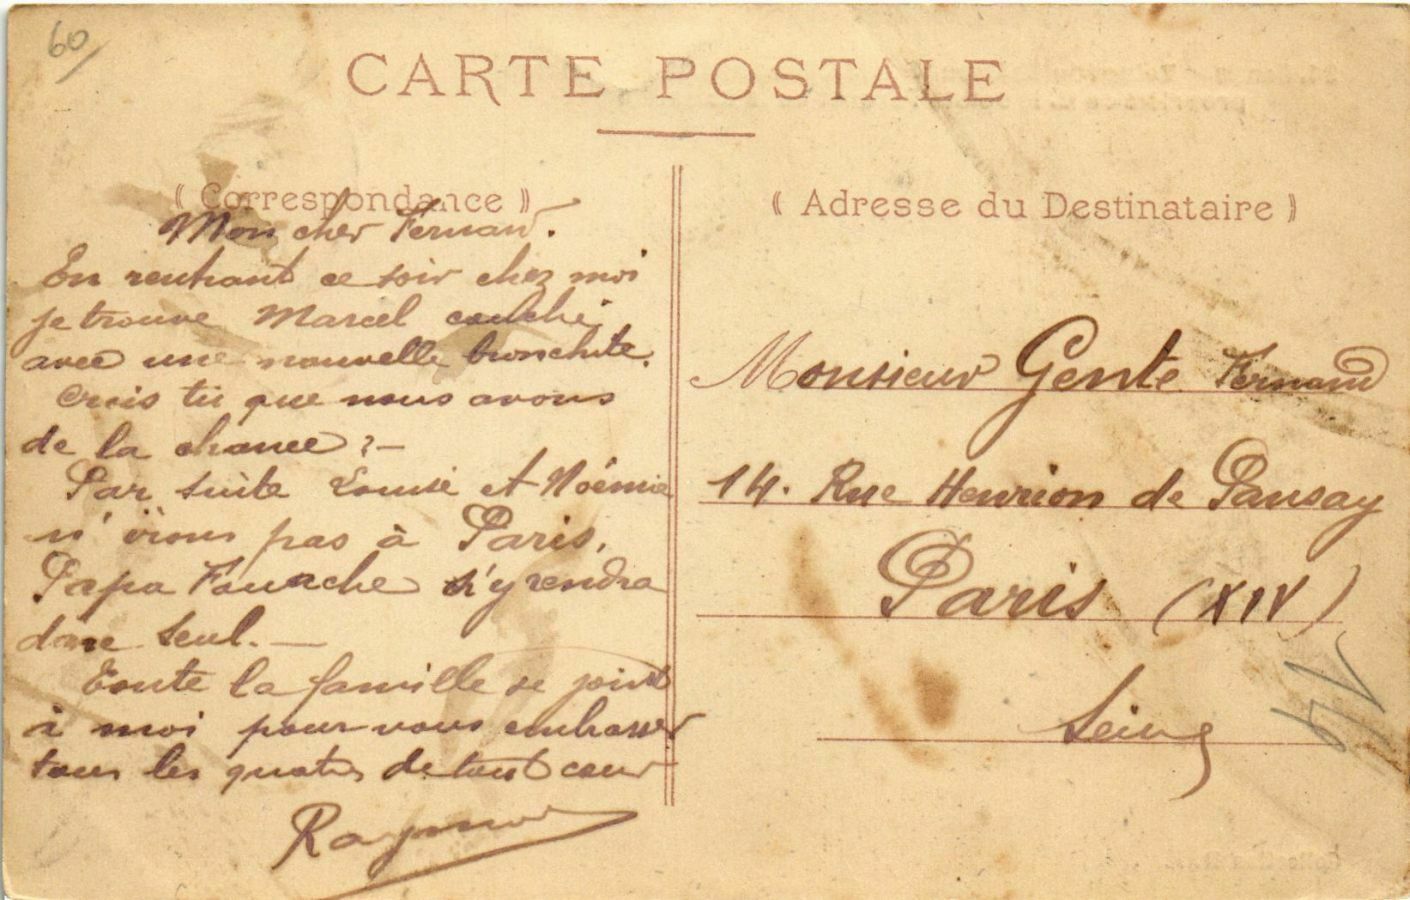 60
CARTE POSTALE
( Correspondance )
Mon cher Fernand.
En rentrant ce soir chez moi
je trouve Marcel couché
avec une nouvelle bronchite.
Crois tu que nous avons
de la chance ? —
Par suite Louise et Noémie
n'irons pas à Paris,
Papa Fouache s'y rendra
donc seul. —
Toute la famille se joint
à moi pour vous embrasser
tous les quatre de tout cœur
Raymond
( Adresse du Destinataire )
Monsieur Gente Fernand
14. Rue Henrion de Pansay
Paris (XIV)
Seine
14